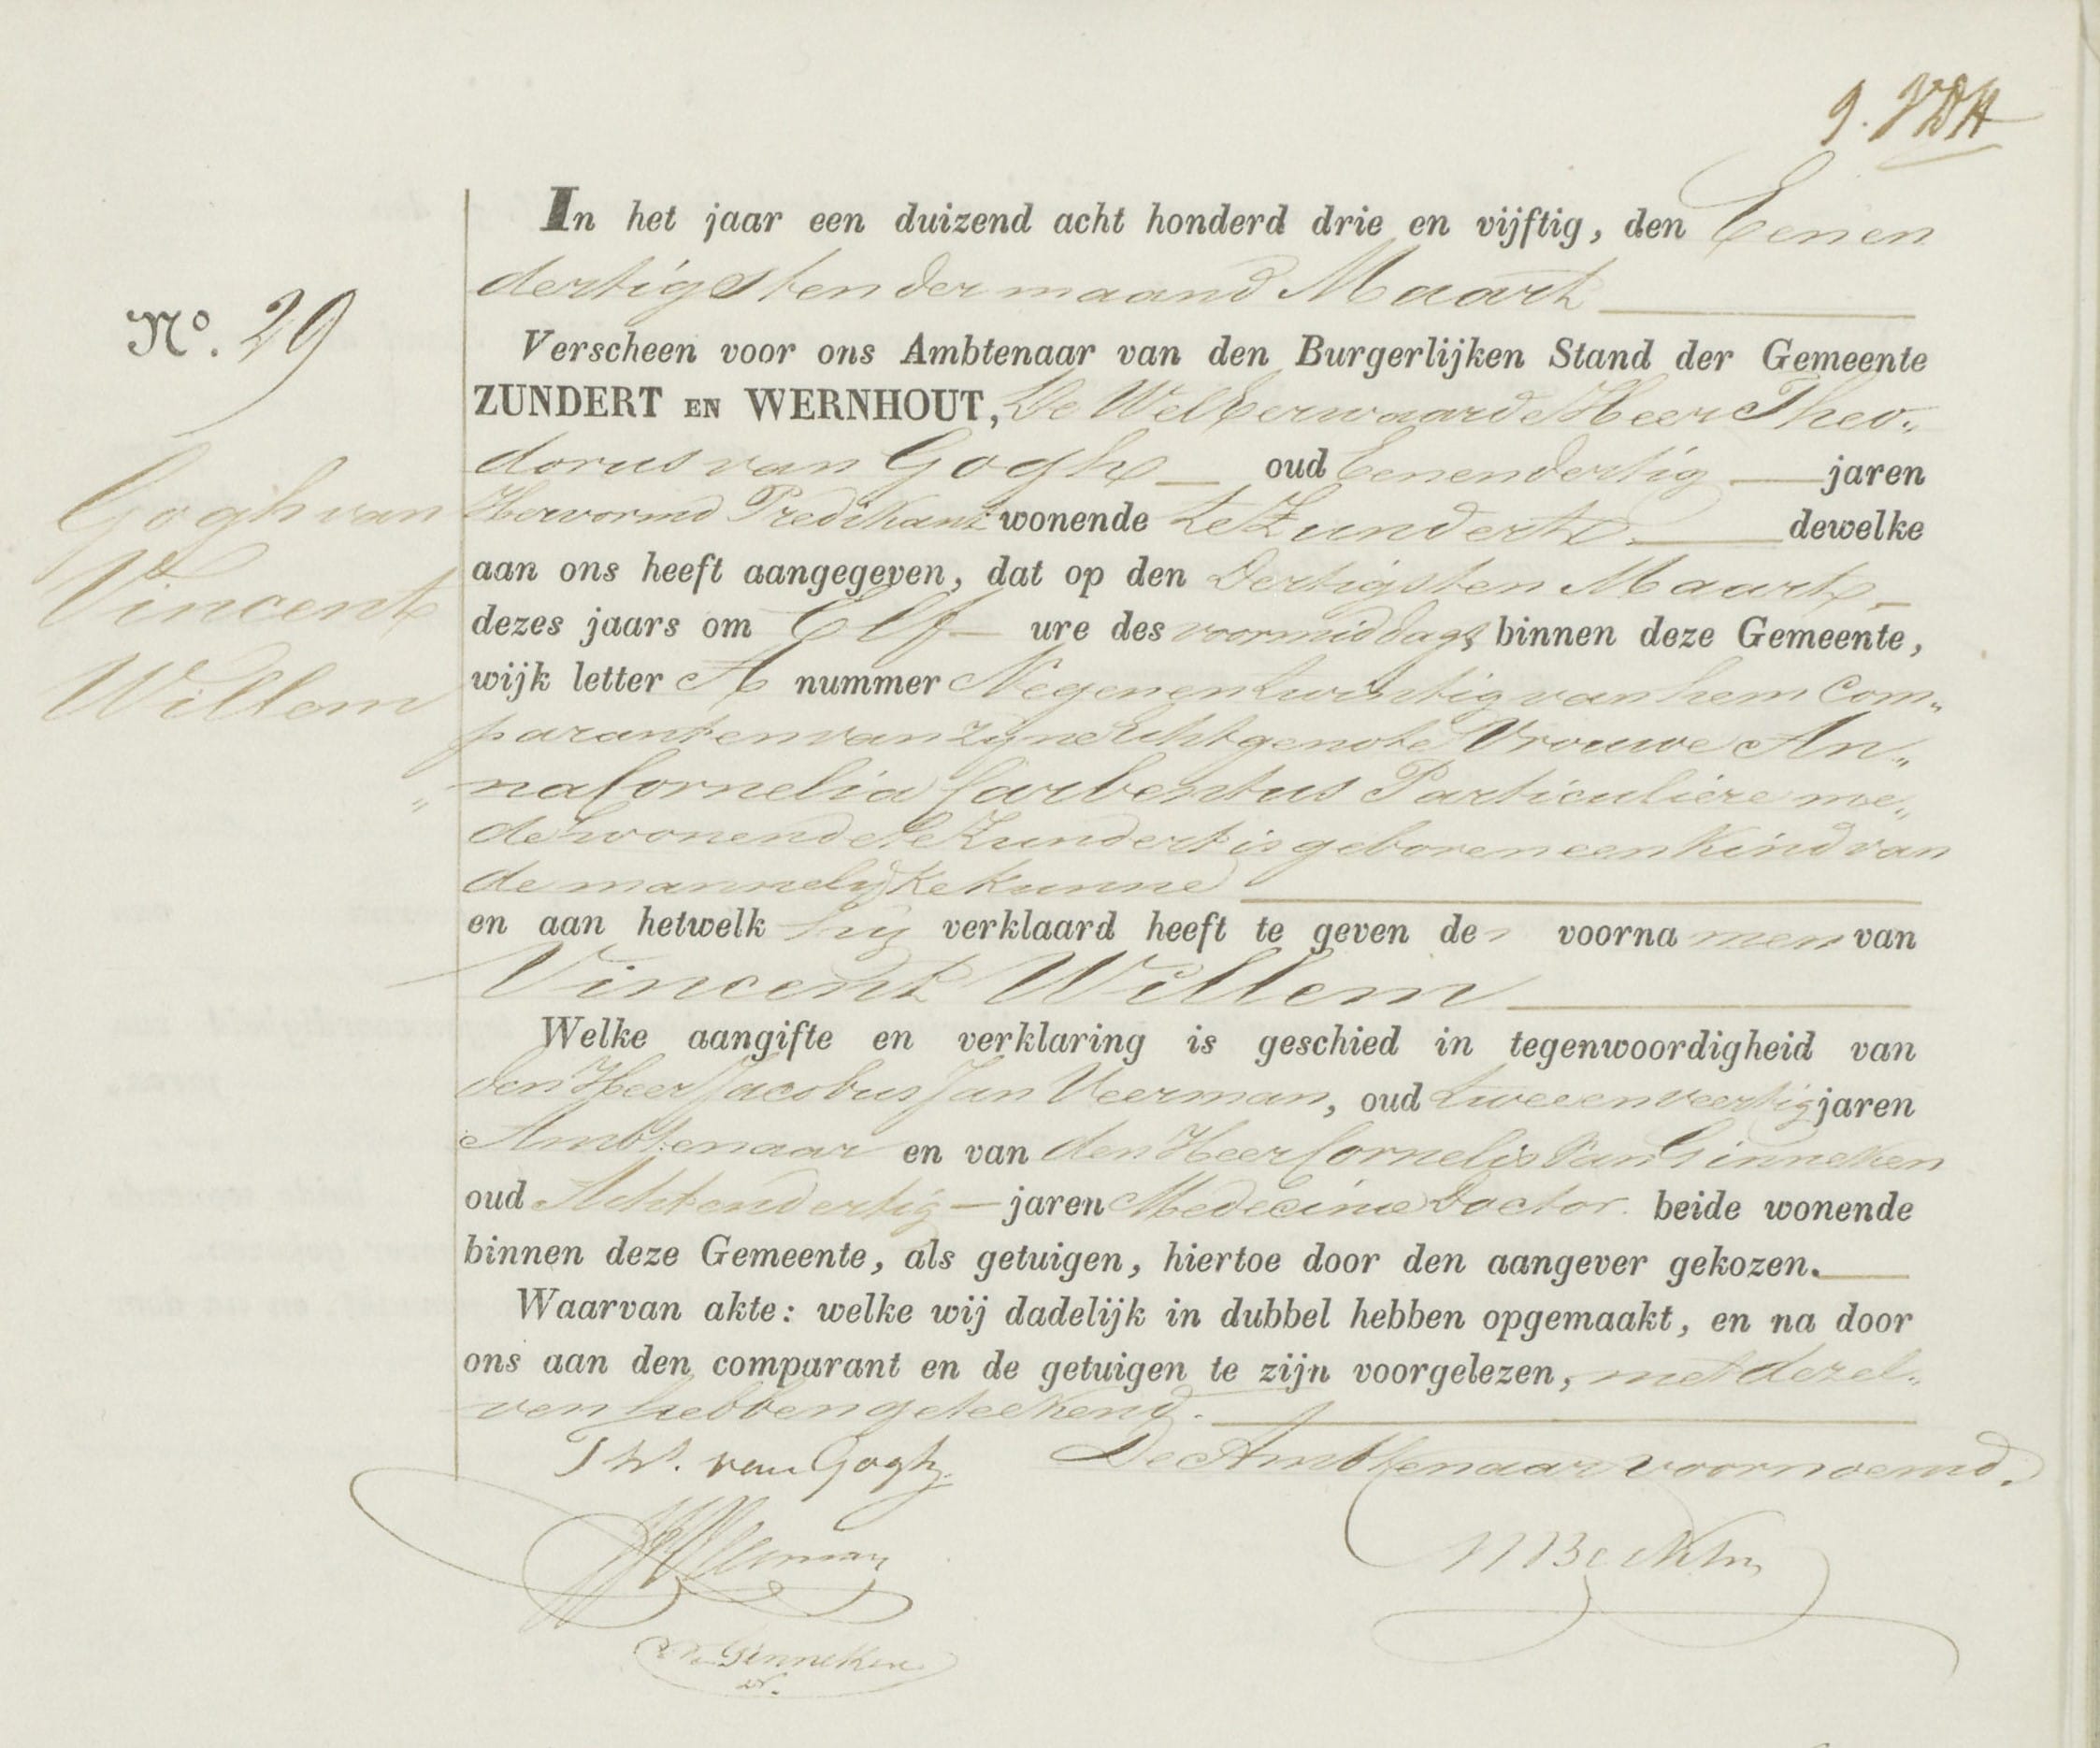 9.
In het jaar een duizend acht honderd drie en vijftig, den Eenen
dertigsten der maand Maart
No. 29
Verscheen voor ons Ambtenaar van den Burgerlijken Stand der Gemeente
ZUNDERT EN WERNHOUT, De WelEerwaarde Heer Theo„
dorus van Gogh oud Eenendertig jaren
Gogh van
Hervormd Predikant wonende te Zundert dewelke
aan ons heeft aangegeven, dat op den dertigsten Maart
Vincent
dezes jaars om Elf ure des voormiddags binnen deze Gemeente,
Willem
wijk letter A nummer Negenentwintig van hem Com„
parant en van zijne Echtgenote Vrouwe An„
„ na Cornelia Carbentus Particuliere me„
de wonende te Zundert is geboren een Kind van
de mannelijke Kunne
en aan hetwelk hij verklaard heeft te geven de voornamen van
Vincent Willem
Welke aangifte en verklaring is geschied in tegenwoordigheid van
den Heer Jacobus Jan Veerman, oud tweeenveertig jaren
Ambtenaar en van den Heer Cornelis van Ginneken
oud Achtendertig jaren Medecinae Doctor beide wonende
binnen deze Gemeente, als getuigen, hiertoe door den aangever gekozen.
Waarvan akte: welke wij dadelijk in dubbel hebben opgemaakt, en na door
ons aan den comparant en de getuigen te zijn voorgelezen, met dezel„
ven hebben geteekend.
Th. van Gogh De Ambtenaar voornoemd.
JJVeerman
Ginneken